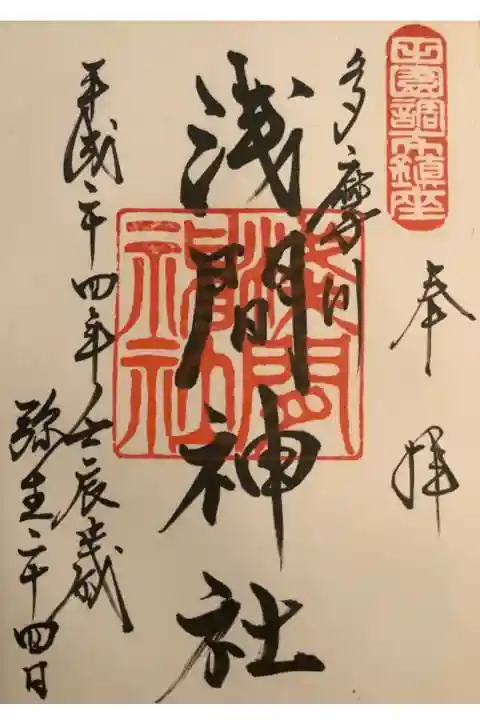 田園調布鎮座
奉拝
多摩川
浅間神社
浅間神社
平成二十四年壬辰歳
弥生二十四日